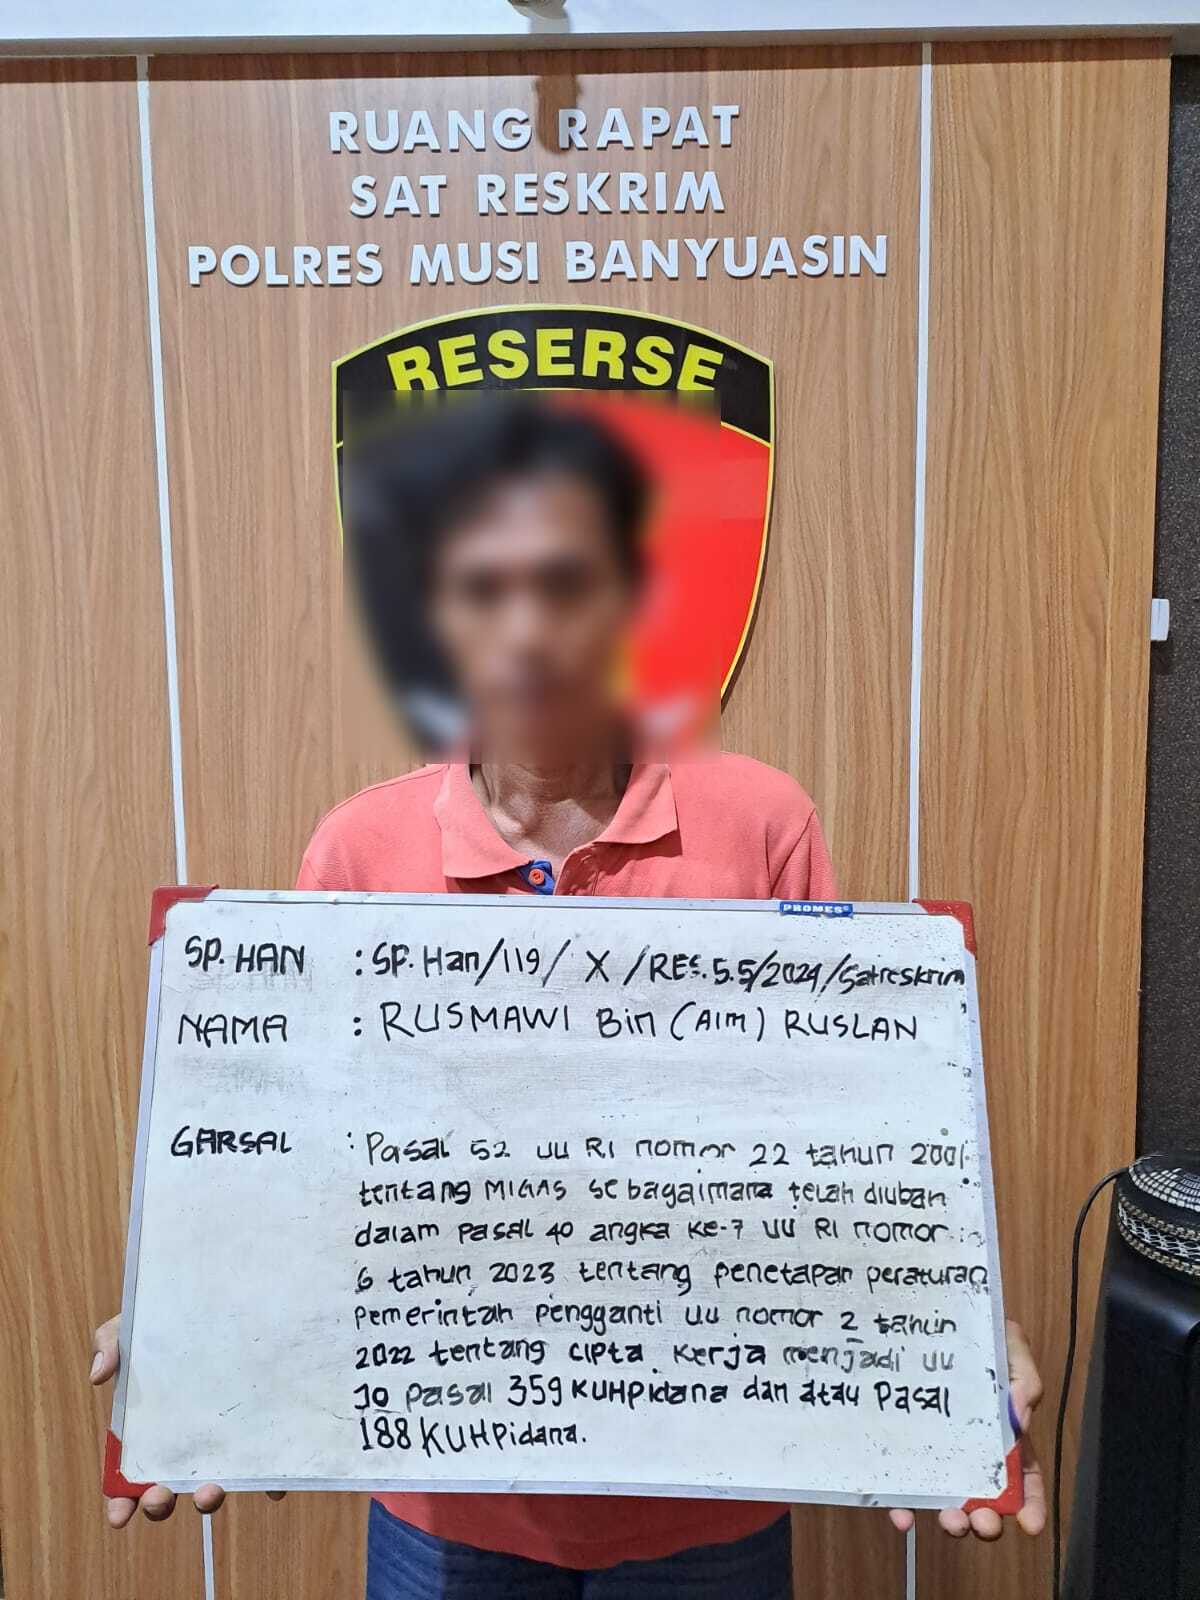 RUANG RAPAT
SAT RESKRIM
POLRES MUSI BANYUASIN
RESERSE
PROMES
SP. HAN : SP. Han/119/ X /RES.5.5/2024/Satreskrim
NAMA : RUSMAWI Bin (Alm) RUSLAN
GARSAL : Pasal 52 UU RI nomor 22 tahun 2001
tentang MIGAS sebagaimana telah diubah
dalam pasal 40 angka ke-7 UU RI nomor
6 tahun 2023 tentang penetapan peraturan
Pemerintah Pengganti UU nomor 2 tahun
2022 tentang cipta kerja menjadi UU
Jo pasal 359 KUHPidana dan atau Pasal
188 KUHPidana.